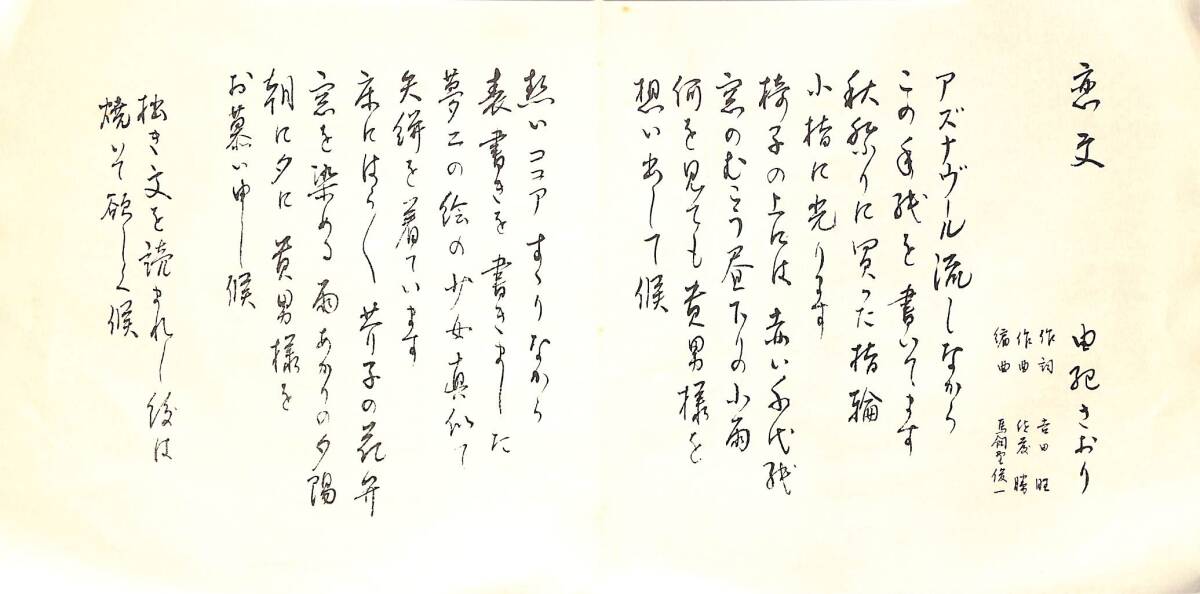 恋文
由紀さおり
作詞 吉田旺
作曲 佐藤勝
編曲 馬飼野俊一
アズナヴール流しながら
この手紙を書いてます
秋祭りに買った指輪
小指に光ります
椅子の上には 赤い千代紙
窓のむこう昼下りの小雨
何を見ても貴男様を
想い出して候
熱いココア すゝりながら
表書きを書きました
夢二の絵の少女真似て
矢絣を着ています
床にはらはら 芥子の花弁
窓を染める雨あがりの夕陽
朝に夕に 貴男様を
お慕い申し候
拙き文を読まれし後は
焼いて欲しく候